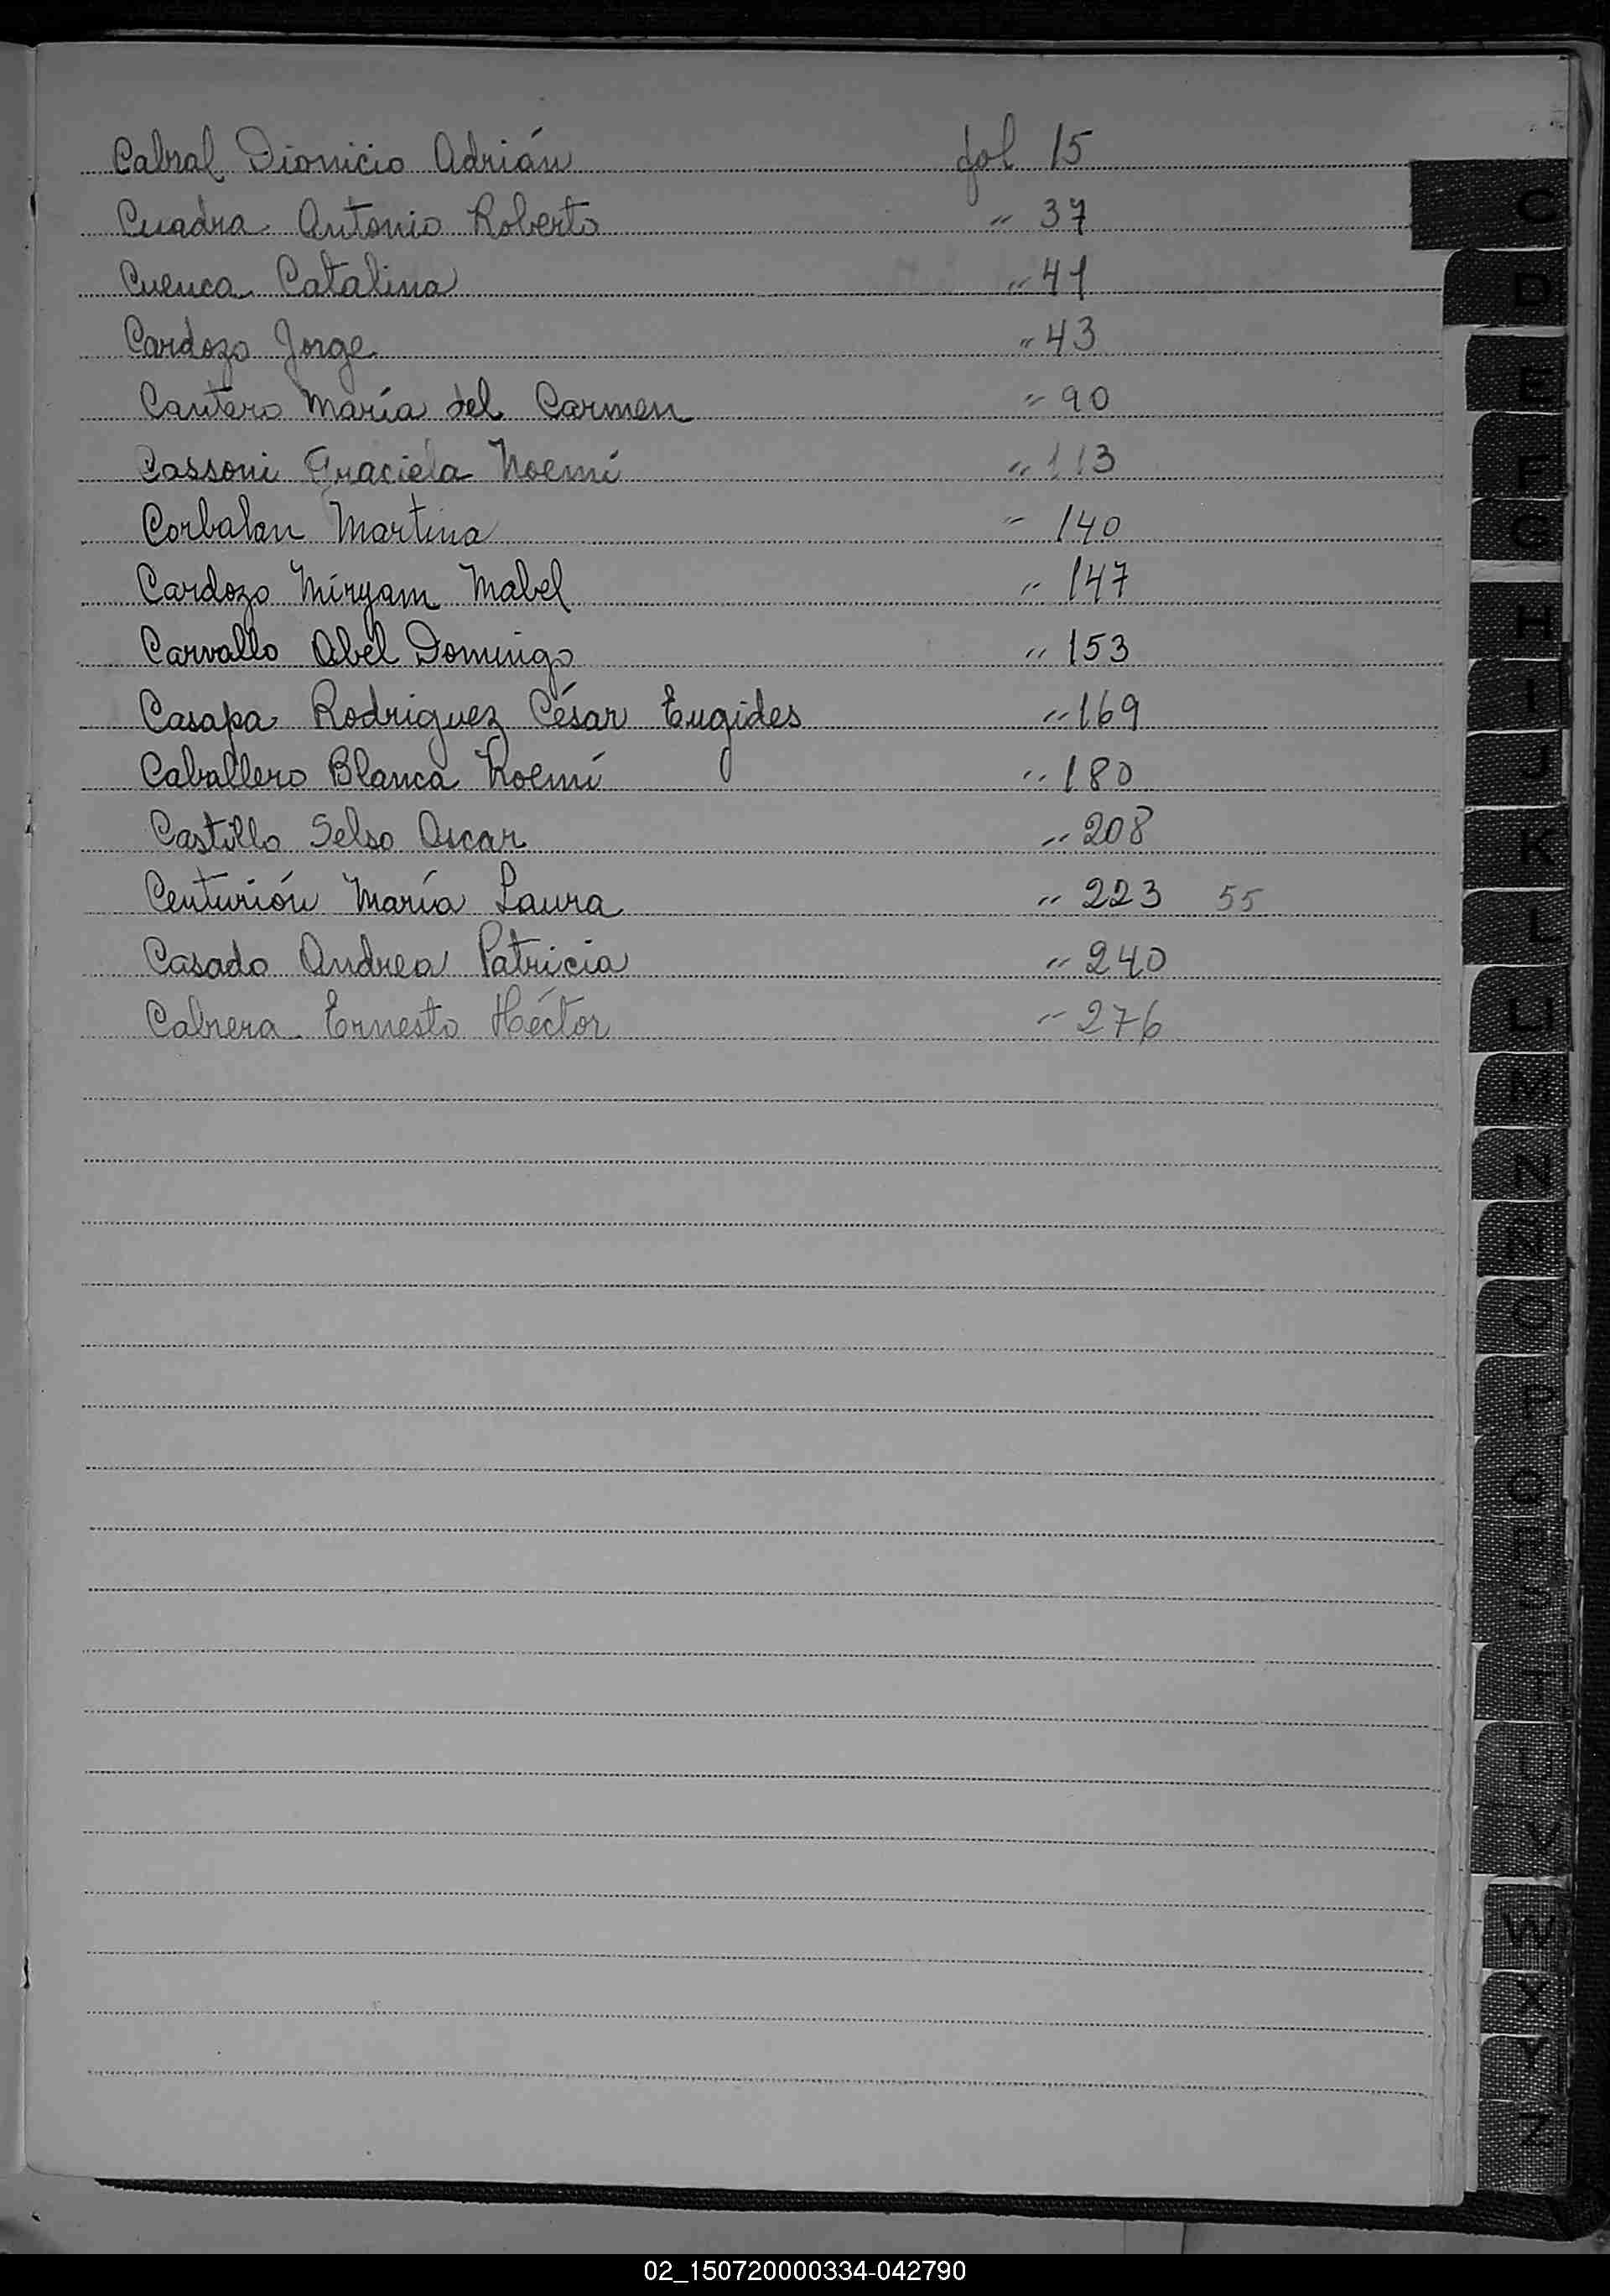 Cabral Dionicio Adrián fol 15
Cuadra Antonio Roberto " 37
Cuenca Catalina " 41
Cardozo Jorge " 43
Cantero María del Carmen " 90
Cassoni Graciela Noemí " 113
Corbalan Martina " 140
Cardozo Míryam Mabel " 147
Carvallo Abel Domingo " 153
Casapa Rodriguez César Eugides " 169
Caballero Blanca Noemí " 180
Castillo Selso Oscar " 208
Centurión María Laura " 223 55
Casado Andrea Patricia " 240
Cabrera Ernesto Héctor " 276
C
D
E
F
G
H
I
J
K
L
LL
M
N
Ñ
O
P
Q
R
S
T
U
V
W
X
Y
Z
02_150720000334-042790